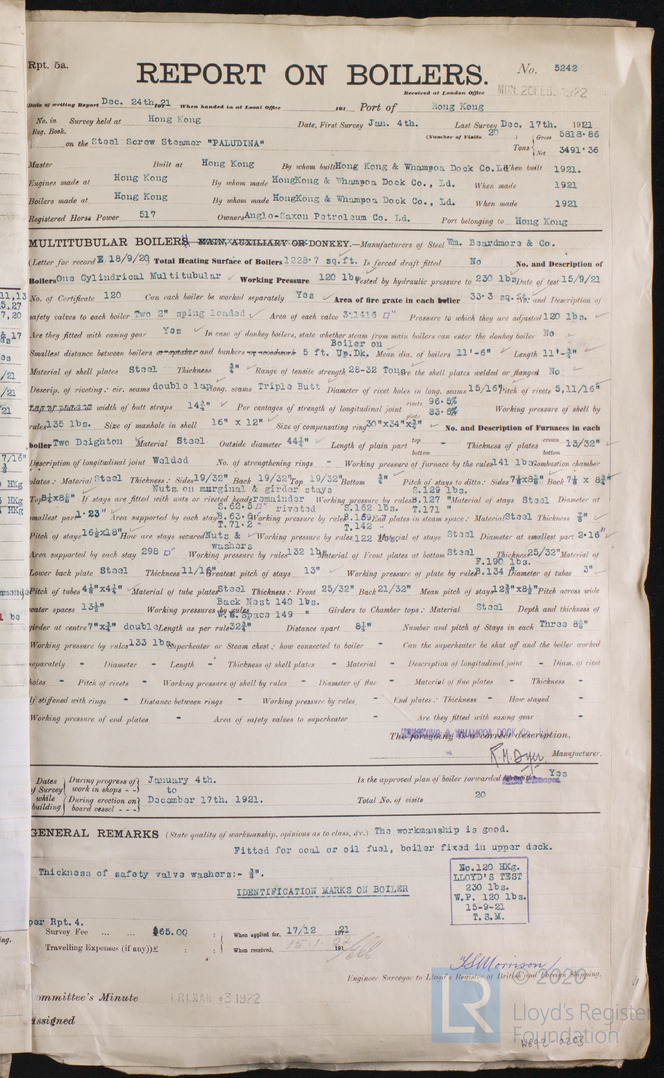 Rpt. 5a.
REPORT ON BOILERS.
No. 5242
Received at London Office MON. 20 FEB. 1922
Date of writing Report Dec. 24th, 21 When handed in at Local Office 191 Port of Hong Kong
No. in Survey held at Hong Kong Date, First Survey Jan. 4th. Last Survey Dec. 17th. 1921
Reg. Book. (Number of Visits 20
on the Steel Screw Steamer "PALUDINA" Tons { Gross 5818.86
Net 3491.36
Master Built at Hong Kong By whom built Hong Kong & Whampoa Dock Co. Ld When built 1921.
Engines made at Hong Kong By whom made HongKong & Whampoa Dock Co., Ld. When made 1921
Boilers made at Hong Kong By whom made HongKong & Whampoa Dock Co., Ld. When made 1921
Registered Horse Power 517 Owners Anglo-Saxon Petroleum Co. Ld. Port belonging to Hong Kong
MULTITUBULAR BOILERS MAIN, AUXILIARY OR DONKEY.—Manufacturers of Steel Wm. Beardmore & Co.
(Letter for record E 18/9/20 Total Heating Surface of Boilers 1228.7 sq.ft. Is forced draft fitted No No. and Description of
Boilers One Cylindrical Multitubular Working Pressure 120 lbs Tested by hydraulic pressure to 230 lbs Date of test 15/9/21
No. of Certificate 120 Can each boiler be worked separately Yes Area of fire grate in each boiler 33.3 sq.ft. No. and Description of
safety valves to each boiler Two 2" sping loaded Area of each valve 3.1416 □" Pressure to which they are adjusted 120 lbs.
Are they fitted with easing gear Yes In case of donkey boilers, state whether steam from main boilers can enter the donkey boiler No
Boiler on
Smallest distance between boilers or uptakes and bunkers or woodwork 5 ft. Up.Dk. Mean dia. of boilers 11'-6" Length 11'-¾"
Material of shell plates Steel Thickness ¾" Range of tensile strength 28-32 Tons Are the shell plates welded or flanged No
Descrip. of riveting: cir. seams double lap long. seams Triple Butt Diameter of rivet holes in long. seams 15/16" Pitch of rivets 5,11/16"
Lap of plates or width of butt straps 14¾" Per centages of strength of longitudinal joint rivets 96.5% plate 83.5% Working pressure of shell by
rules 135 lbs. Size of manhole in shell 16" x 12" Size of compensating ring 30"x34"x¾" No. and Description of Furnaces in each
boiler Two Deighton Material Steel Outside diameter 44¼" Length of plain part top bottom Thickness of plates crown bottom 13/32"
Description of longitudinal joint Welded No. of strengthening rings - Working pressure of furnace by the rules 141 lbs Combustion chamber
plates: Material Steel Thickness: Sides 19/32" Back 19/32" Top 19/32" Bottom ¾" Pitch of stays to ditto: Sides 7½x8½" Back 7½ x 8¼"
Nuts on marginal & girder stays S.129 lbs.
Top 8½x8½" If stays are fitted with nuts or riveted heads remainder Working pressure by rules B.127 " Material of stays Steel Diameter at
S.62.5 □" riveted S.162 lbs. T.171 "
smallest part 1.23" Area supported by each stay B.63.6 Working pressure by rules B.159 End plates in steam space: Material Steel Thickness ⅞"
T.71.2 T.142
Pitch of stays 16½x18" How are stays secured Nuts & washers Working pressure by rules 122 lbs. Material of stays Steel Diameter at smallest part 2.16"
Area supported by each stay 298 □" Working pressure by rules 132 lbs Material of Front plates at bottom Steel Thickness 25/32" Material of
F.190 lbs.
Lower back plate Steel Thickness 11/16" Greatest pitch of stays 13" Working pressure of plate by rules B.134 Diameter of tubes 3"
Pitch of tubes 4¼"x4¼" Material of tube plates Steel Thickness: Front 25/32" Back 21/32" Mean pitch of stays 12¾"x8½" Pitch across wide
Back Nest 140 lbs.
water spaces 13½" Working pressures by rules W.W.Space 149 " Girders to Chamber tops: Material Steel Depth and thickness of
girder at centre 7"x¾" double Length as per rule 32¾" Distance apart 8½" Number and pitch of Stays in each Three 8½"
Working pressure by rules 133 lbs Superheater or Steam chest; how connected to boiler - Can the superheater be shut off and the boiler worked
separately - Diameter - Length - Thickness of shell plates - Material - Description of longitudinal joint - Diam. of rivet
holes - Pitch of rivets - Working pressure of shell by rules - Diameter of flue - Material of flue plates - Thickness -
If stiffened with rings - Distance between rings - Working pressure by rules - End plates: Thickness - How stayed -
Working pressure of end plates - Area of safety valves to superheater - Are they fitted with easing gear -
HONGKONG & WHAMPOA DOCK Co.
The foregoing is a correct description,
R. M. Dyer Manufacturer.
Dates of Survey while building
During progress of work in shops - - January 4th.
to
During erection on board vessel - - - December 17th. 1921.
Is the approved plan of boiler forwarded Yes
Total No. of visits 20
GENERAL REMARKS (State quality of workmanship, opinions as to class, &c.) The workmanship is good.
Fitted for coal or oil fuel, boiler fixed in upper deck.
Thickness of safety valve washers:- ¾".
IDENTIFICATION MARKS ON BOILER
No.120 HKg.
LLOYD'S TEST
230 lbs.
W.P. 120 lbs.
15-9-21
T.S.M.
per Rpt. 4.
Survey Fee ... ... $65.00 : : When applied for, 17/12 1921
Travelling Expenses (if any) £ : : When received, 191
T S Morrison
Engineer Surveyor to Lloyd's Register of British and Foreign Shipping.
Committee's Minute
FRI. MAR. 3 1922
Assigned
© 2020
LR
Lloyd's Register
Foundation
W692-0203